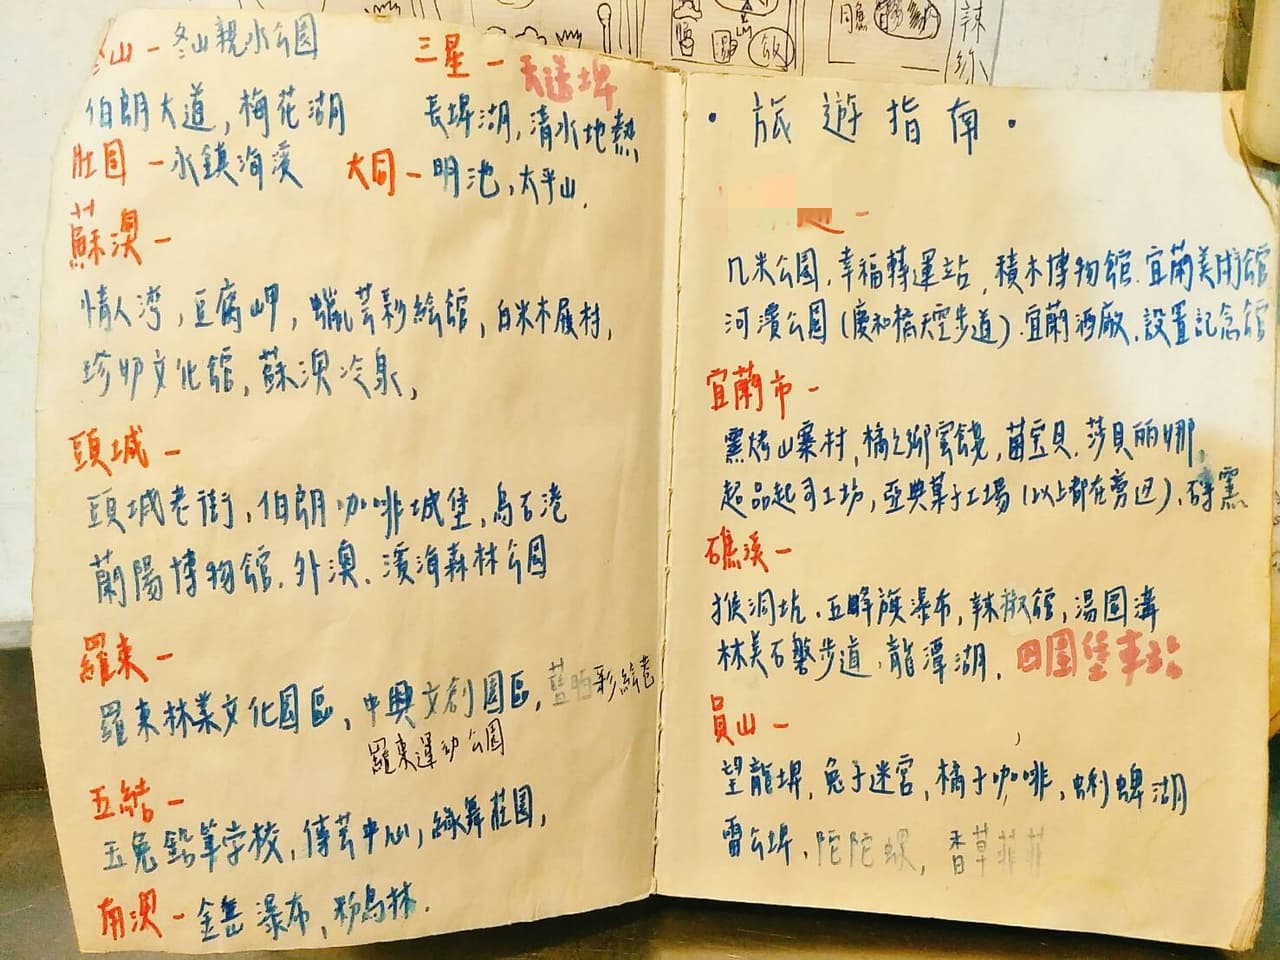 冬山 - 冬山親水公園
伯朗大道, 梅花湖
三星 - 天送埤
長埤湖, 清水地熱
壯圍 - 永鎮海濱
大同 - 明池, 太平山.
蘇澳 -
情人灣, 豆腐岬, 蠟芸彩繪館, 白米木屐村,
珍奶文化館, 蘇澳冷泉,
頭城 -
頭城老街, 伯朗咖啡城堡, 烏石港
蘭陽博物館. 外澳、濱海森林公園
羅東 -
羅東林業文化園區, 中興文創園區, 藍晒彩繪巷
羅東運動公園
五結 -
玉兔鉛筆学校, 傳芸中心, 綠舞莊園,
南澳 - 金岳瀑布, 粉鳥林.
· 旅遊指南 ·
几米公園, 幸福轉運站, 積木博物館. 宜蘭美術館
河濱公園 (慶和橋天空步道). 宜蘭酒廠. 設置記念館
宜蘭市 -
窯烤山寨村, 橘之鄉蜜餞, 菌寶貝. 莎貝莉娜,
超品起司工坊, 亞典菓子工場 (以上都在旁边),
礁溪 -
猴洞坑. 五峰旗瀑布, 辣椒館, 湯圍溝
林美石磐步道. 龍潭湖. 四圍堡車站
員山 -
望龍埤, 兔子迷宮, 橘子咖啡, 蜊埤湖
雷公埤. 陀陀螺, 香草菲菲